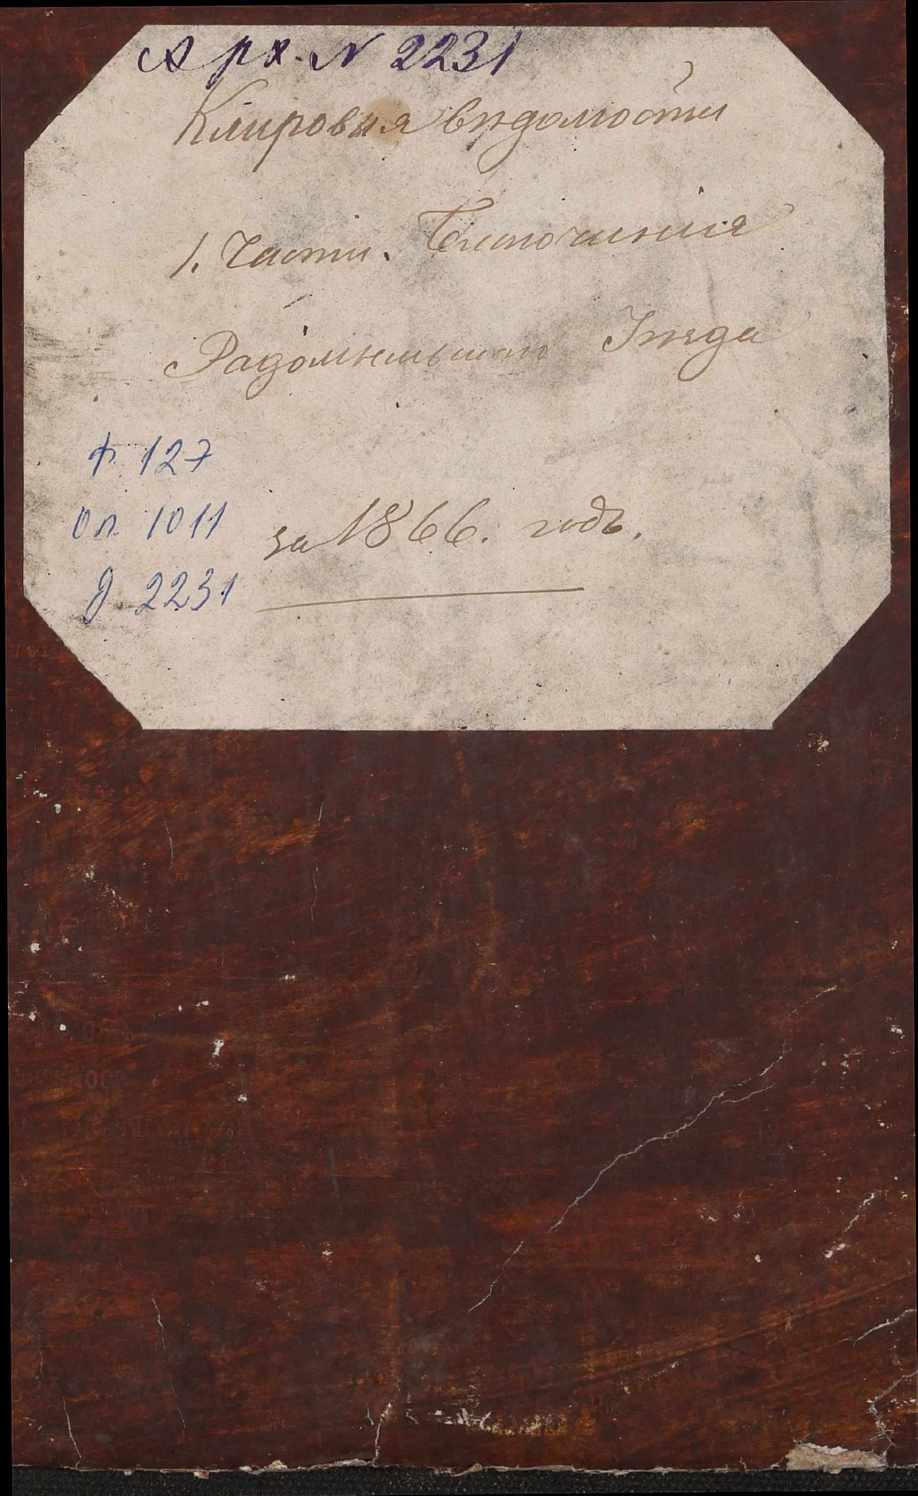 Арх. N 2231
Клировыя вѣдомости
1. Части. Благочинія
Радомысльскаго Уѣзда
ф. 127
оп. 1011
д 2231
за 1866. годъ.